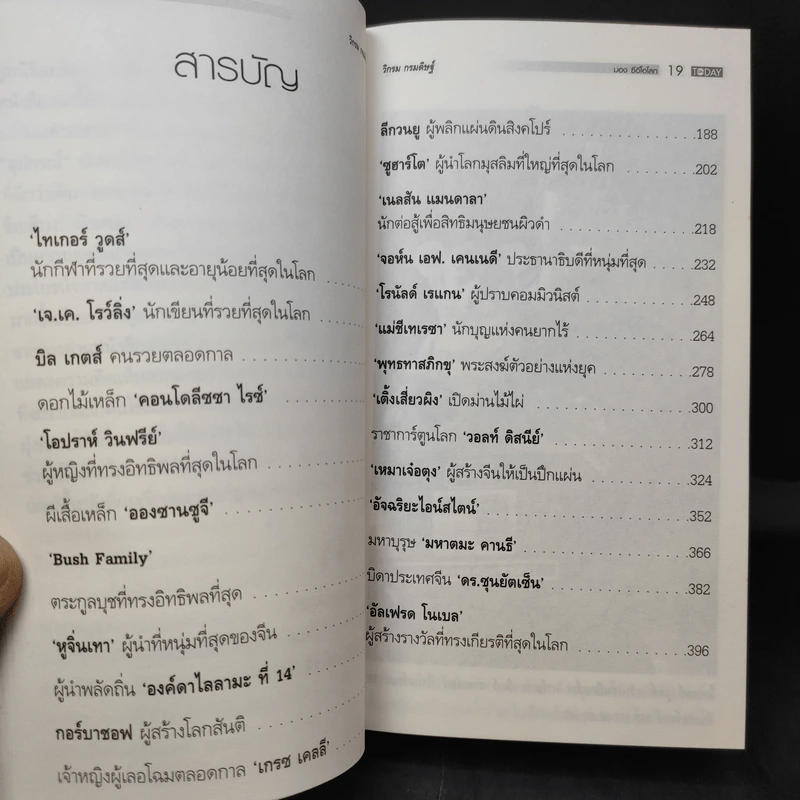 สารบัญ
'ไทเกอร์ วูดส์'
นักกีฬาที่รวยที่สุดและอายุน้อยที่สุดในโลก
'เจ.เค. โรว์ลิ่ง' นักเขียนที่รวยที่สุดในโลก
บิล เกตส์ คนรวยตลอดกาล
ดอกไม้เหล็ก 'คอนโดลีซซา ไรซ์'
'โอปราห์ วินฟรีย์'
ผู้หญิงที่ทรงอิทธิพลที่สุดในโลก
ผีเสื้อเหล็ก 'อองซานซูจี'
'Bush Family'
ตระกูลบุชที่ทรงอิทธิพลที่สุด
'หูจิ่นเทา' ผู้นำที่หนุ่มที่สุดของจีน
ผู้นำพลัดถิ่น 'องค์ดาไลลามะ ที่ 14'
กอร์บาชอฟ ผู้สร้างโลกสันติ
เจ้าหญิงผู้เลอโฉมตลอดกาล 'เกรซ เคลลี'
วิกรม กรมดิษฐ์
มอง ซีอีโอโลก 19 TODAY
ลีกวนยู ผู้พลิกแผ่นดินสิงคโปร์ 188
'ซูฮาร์โต' ผู้นำโลกมุสลิมที่ใหญ่ที่สุดในโลก 202
'เนลสัน แมนดาลา'
นักต่อสู้เพื่อสิทธิมนุษยชนผิวดำ 218
'จอห์น เอฟ. เคนเนดี' ประธานาธิบดีที่หนุ่มที่สุด 232
'โรนัลด์ เรแกน' ผู้ปราบคอมมิวนิสต์ 248
'แม่ชีเทเรซา' นักบุญแห่งคนยากไร้ 264
'พุทธทาสภิกขุ' พระสงฆ์ตัวอย่างแห่งยุค 278
'เติ้งเสี่ยวผิง' เปิดม่านไม้ไผ่ 300
ราชาการ์ตูนโลก 'วอลท์ ดิสนีย์' 312
'เหมาเจ๋อตุง' ผู้สร้างจีนให้เป็นปึกแผ่น 324
'อัจฉริยะไอน์สไตน์' 352
มหาบุรุษ 'มหาตมะ คานธี' 366
บิดาประเทศจีน 'ดร.ซุนยัตเซ็น' 382
'อัลเฟรด โนเบล'
ผู้สร้างรางวัลที่ทรงเกียรติที่สุดในโลก 396